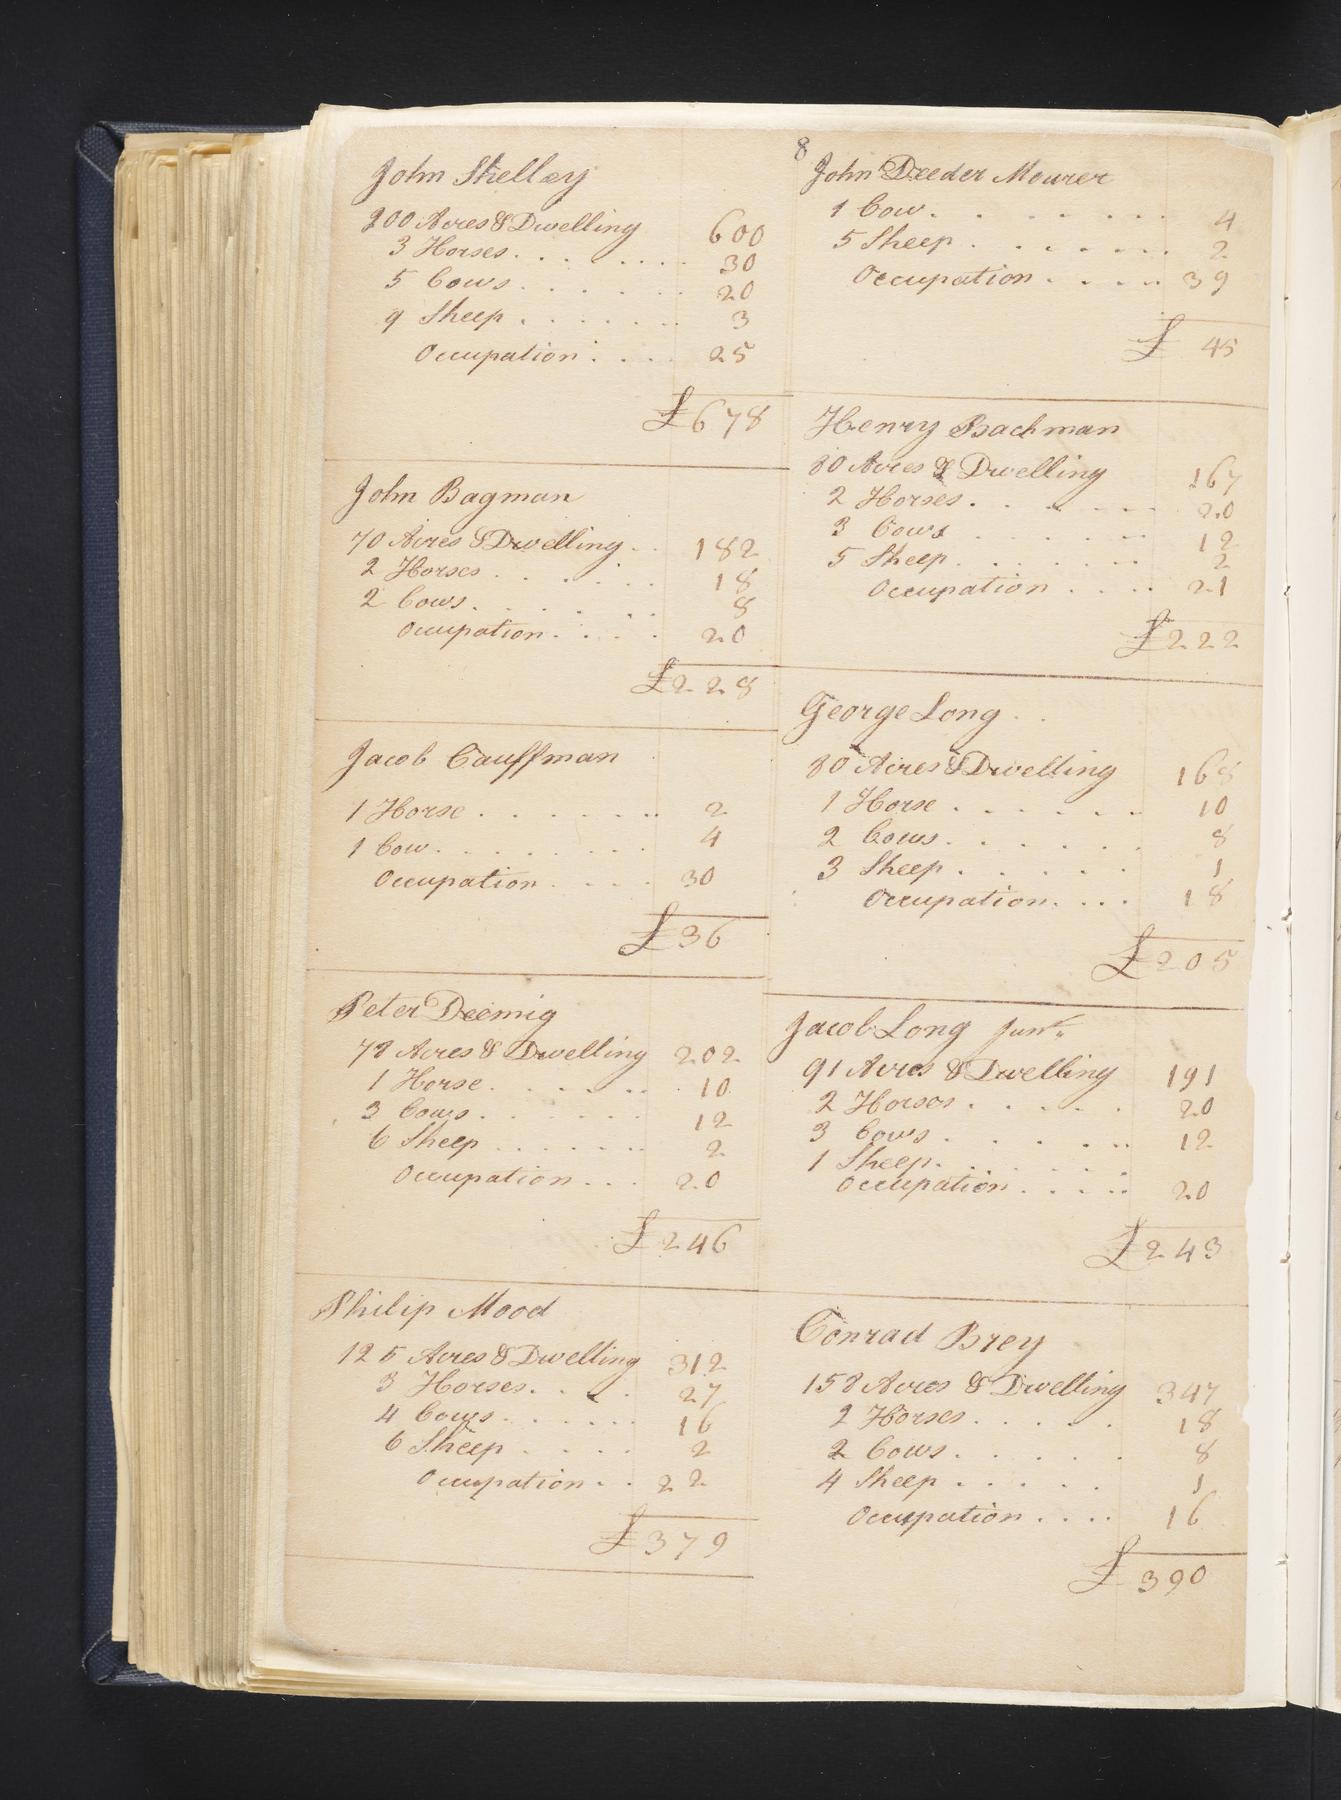 John Shelley
200 Acres & Dwelling 600
3 Horses. . . . . . . . 30
5 Cows . . . . . . . 20
9 Sheep . . . . . . . . 3
Occupation . . . . 25
£678
John Bagman
70 Acres & Dwelling . . 182
2 Horses . . . . . . . 18
2 Cows . . . . . . . 8
Occupation . . . . . 20
£228
Jacob Cauffman
1 Horse . . . . . . . . 2
1 Cow . . . . . . . . . 4
Occupation . . . . 30
£36
Peter Deemig
78 Acres & Dwelling 202
1 Horse . . . . . . . 10
3 Cows . . . . . . . 12
6 Sheep . . . . . . . 2
Occupation . . . 20
£246
Philip Mood
125 Acres & Dwelling 312
3 Horses. . . . 27
4 Cows . . . . . . 16
6 Sheep . . . . 2
Occupation . . 22
£379
8
John Deeder Mourer
1 Cow. . . . . . . . . 4
5 Sheep . . . . . . . 2
Occupation . . . . . 39
£ 45
Henry Bachman
80 Acres & Dwelling 167
2 Horses . . . . . . . 20
3 Cows . . . . . . . 12
5 Sheep . . . . . . . 2
Occupation . . . . 21
£222
George Long . .
80 Acres & Dwelling 168
1 Horse . . . . . . . 10
2 Cows . . . . . . . 8
3 Sheep . . . . . . 1
Occupation . . . . 18
£205
Jacob Long Junr
91 Acres & Dwelling 191
2 Horses . . . . . 20
3 Cows . . . . . . 12
1 Sheep . . . . . . .
Occupation . . . . . 20
£243
Conrad Brey
158 Acres & Dwelling 347
2 Horses . . . . . 18
2 Cows . . . . . . 8
4 Sheep . . . . . 1
Occupation . . . . 16
£390